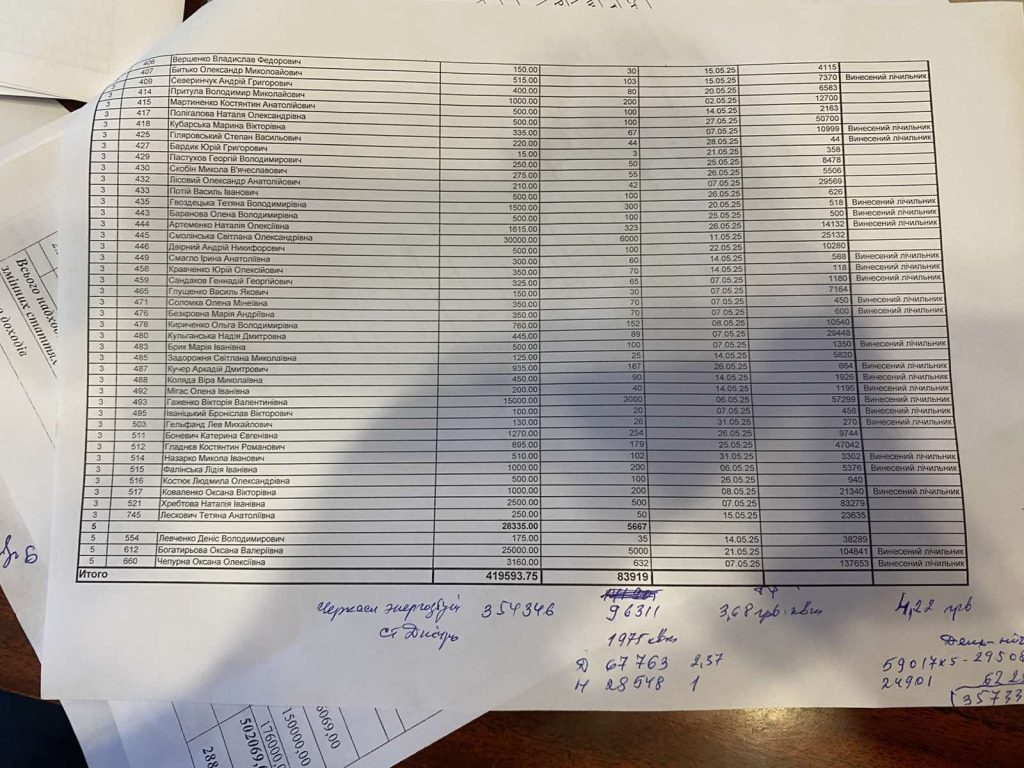 406 Вершенко Владислав Федорович 150.00 30 15.05.25 4115
407 Битько Олександр Миколоайович 515.00 103 15.05.25 7370 Винесений лічильник
3 409 Северинчук Андрій Григорович 400.00 80 20.05.25 6583
3 414 Притула Володимир Миколайович 1000.00 200 02.05.25 12700
3 415 Мартиненко Костянтин Анатолійович 500.00 100 14.05.25 2163
3 417 Полігалова Наталя Олександрівна 500.00 100 27.05.25 50700
3 418 Кубарська Марина Вікторівна 335.00 67 07.05.25 10999 Винесений лічильник
3 425 Гіляровський Степан Васильович 220.00 44 28.05.25 44 Винесений лічильник
3 427 Бардик Юрій Григорович 15.00 3 21.05.25 358
3 429 Пастухов Георгій Володимирович 250.00 50 25.05.25 8478
3 430 Скобін Микола В'ячеславович 275.00 55 26.05.25 5506
3 432 Лісовий Олександр Анатолійович 210.00 42 07.05.25 29569
3 433 Потій Василь Іванович 500.00 100 26.05.25 626
3 435 Гвоздецька Тетяна Володимирівна 1500.00 300 20.05.25 518 Винесений лічильник
3 443 Баранова Олена Володимирівна 500.00 100 25.05.25 500 Винесений лічильник
3 444 Артеменко Наталія Олексіївна 1615.00 323 26.05.25 14132 Винесений лічильник
3 445 Смолінська Світлана Олександрівна 30000.00 6000 11.05.25 25132
3 446 Двірний Андрій Никифорович 500.00 100 22.05.25 10280
3 449 Смагло Ірина Анатоліївна 300.00 60 14.05.25 588 Винесений лічильник
3 458 Кравченко Юрій Олексійович 350.00 70 14.05.25 118 Винесений лічильник
3 459 Сандаков Геннадій Георгійович 325.00 65 07.05.25 1180 Винесений лічильник
3 465 Глущенко Василь Якович 150.00 30 07.05.25 7164
3 471 Соломка Олена Мінеївна 350.00 70 07.05.25 450 Винесений лічильник
3 476 Безкровна Марія Андріївна 350.00 70 07.05.25 600 Винесений лічильник
3 478 Кириченко Ольга Володимирівна 760.00 152 08.05.25 10540
3 480 Кульганська Надія Дмитровна 445.00 89 07.05.25 29448
3 483 Брик Марія Іванівна 500.00 100 07.05.25 1350 Винесений лічильник
3 485 Задорожня Світлана Миколаївна 125.00 25 14.05.25 5820
3 487 Кучер Аркадій Дмитрович 935.00 187 26.05.25 684 Винесений лічильник
3 488 Коляда Віра Миколаївна 450.00 90 14.05.25 1926 Винесений лічильник
3 492 Мігас Олена Іванівна 200.00 40 14.05.25 1195 Винесений лічильник
3 493 Гаженко Вікторія Валентинівна 15000.00 3000 06.05.25 57299 Винесений лічильник
3 495 Іваніцький Броніслав Вікторович 100.00 20 07.05.25 458 Винесений лічильник
3 503 Гельфанд Лев Михайлович 130.00 26 31.05.25 270 Винесений лічильник
3 511 Боневич Катерина Євгенівна 1270.00 254 26.05.25 9744
3 512 Гладнєв Костянтин Романович 895.00 179 25.05.25 47042
3 514 Назарко Микола Іванович 510.00 102 31.05.25 3302 Винесений лічильник
3 515 Фалінська Лідія Іванівна 1000.00 200 06.05.25 5376 Винесений лічильник
3 516 Костюк Людмила Олександрівна 500.00 100 26.05.25 940
3 517 Коваленко Оксана Вікторівна 1000.00 200 08.05.25 21340 Винесений лічильник
3 521 Хребтова Наталія Іванівна 2500.00 500 07.05.25 83279
3 745 Лескович Тетяна Анатоліївна 250.00 50 15.05.25 23635
5 28335.00 5667
5 554 Левченко Деніс Володимирович 175.00 35 14.05.25 38289
5 612 Богатирьова Оксана Валеріївна 25000.00 5000 21.05.25 104841 Винесений лічильник
5 660 Чепурна Оксана Олексіївна 3160.00 632 07.05.25 137653 Винесений лічильник
Итого 419593.75 83919
Черкаси энергозбут 354346 96311 3,68 грв. квт 4,22 грв
ст Дніпро 1975 квт
Д 67763 2,37
Н 28548 1
59017х5 - 29508
24901 622
35733
Всього надхо
змінних статтях
доходів
8069,00
150000,00
176000,
502069,
288